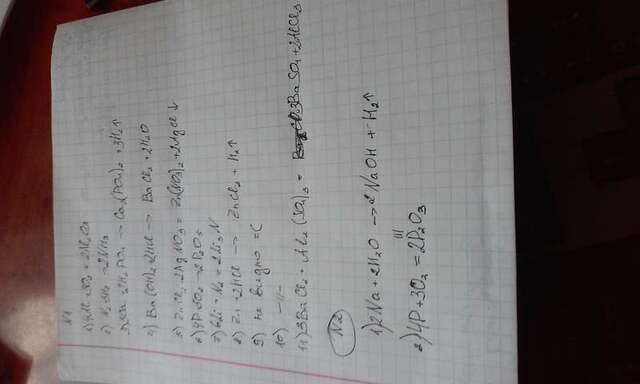 N1
1) 4Al + 3O₂ = 2Al₂O₃
2) N₂ + 3H₂ → 2NH₃
3) 3Ca + 2H₃PO₄ → Ca₃(PO₄)₂ + 3H₂↑
4) Ba(OH)₂ + 2HCl → BaCl₂ + 2H₂O
5) ZnCl₂ + 2AgNO₃ = Zn(NO₃)₂ + 2AgCl↓
6) 4P + 5O₂ → 2P₂O₅
7) 6Li + N₂ = 2Li₃N
8) Zn + 2HCl → ZnCl₂ + H₂↑
9) не видно =(
10) —//—
11) 3BaCl₂ + Al₂(SO₄)₃ = 3BaSO₄ + 2AlCl₃
N2
1) 2Na + 2H₂O → 2NaOH + H₂↑
III
2) 4P + 3O₂ = 2P₂O₃